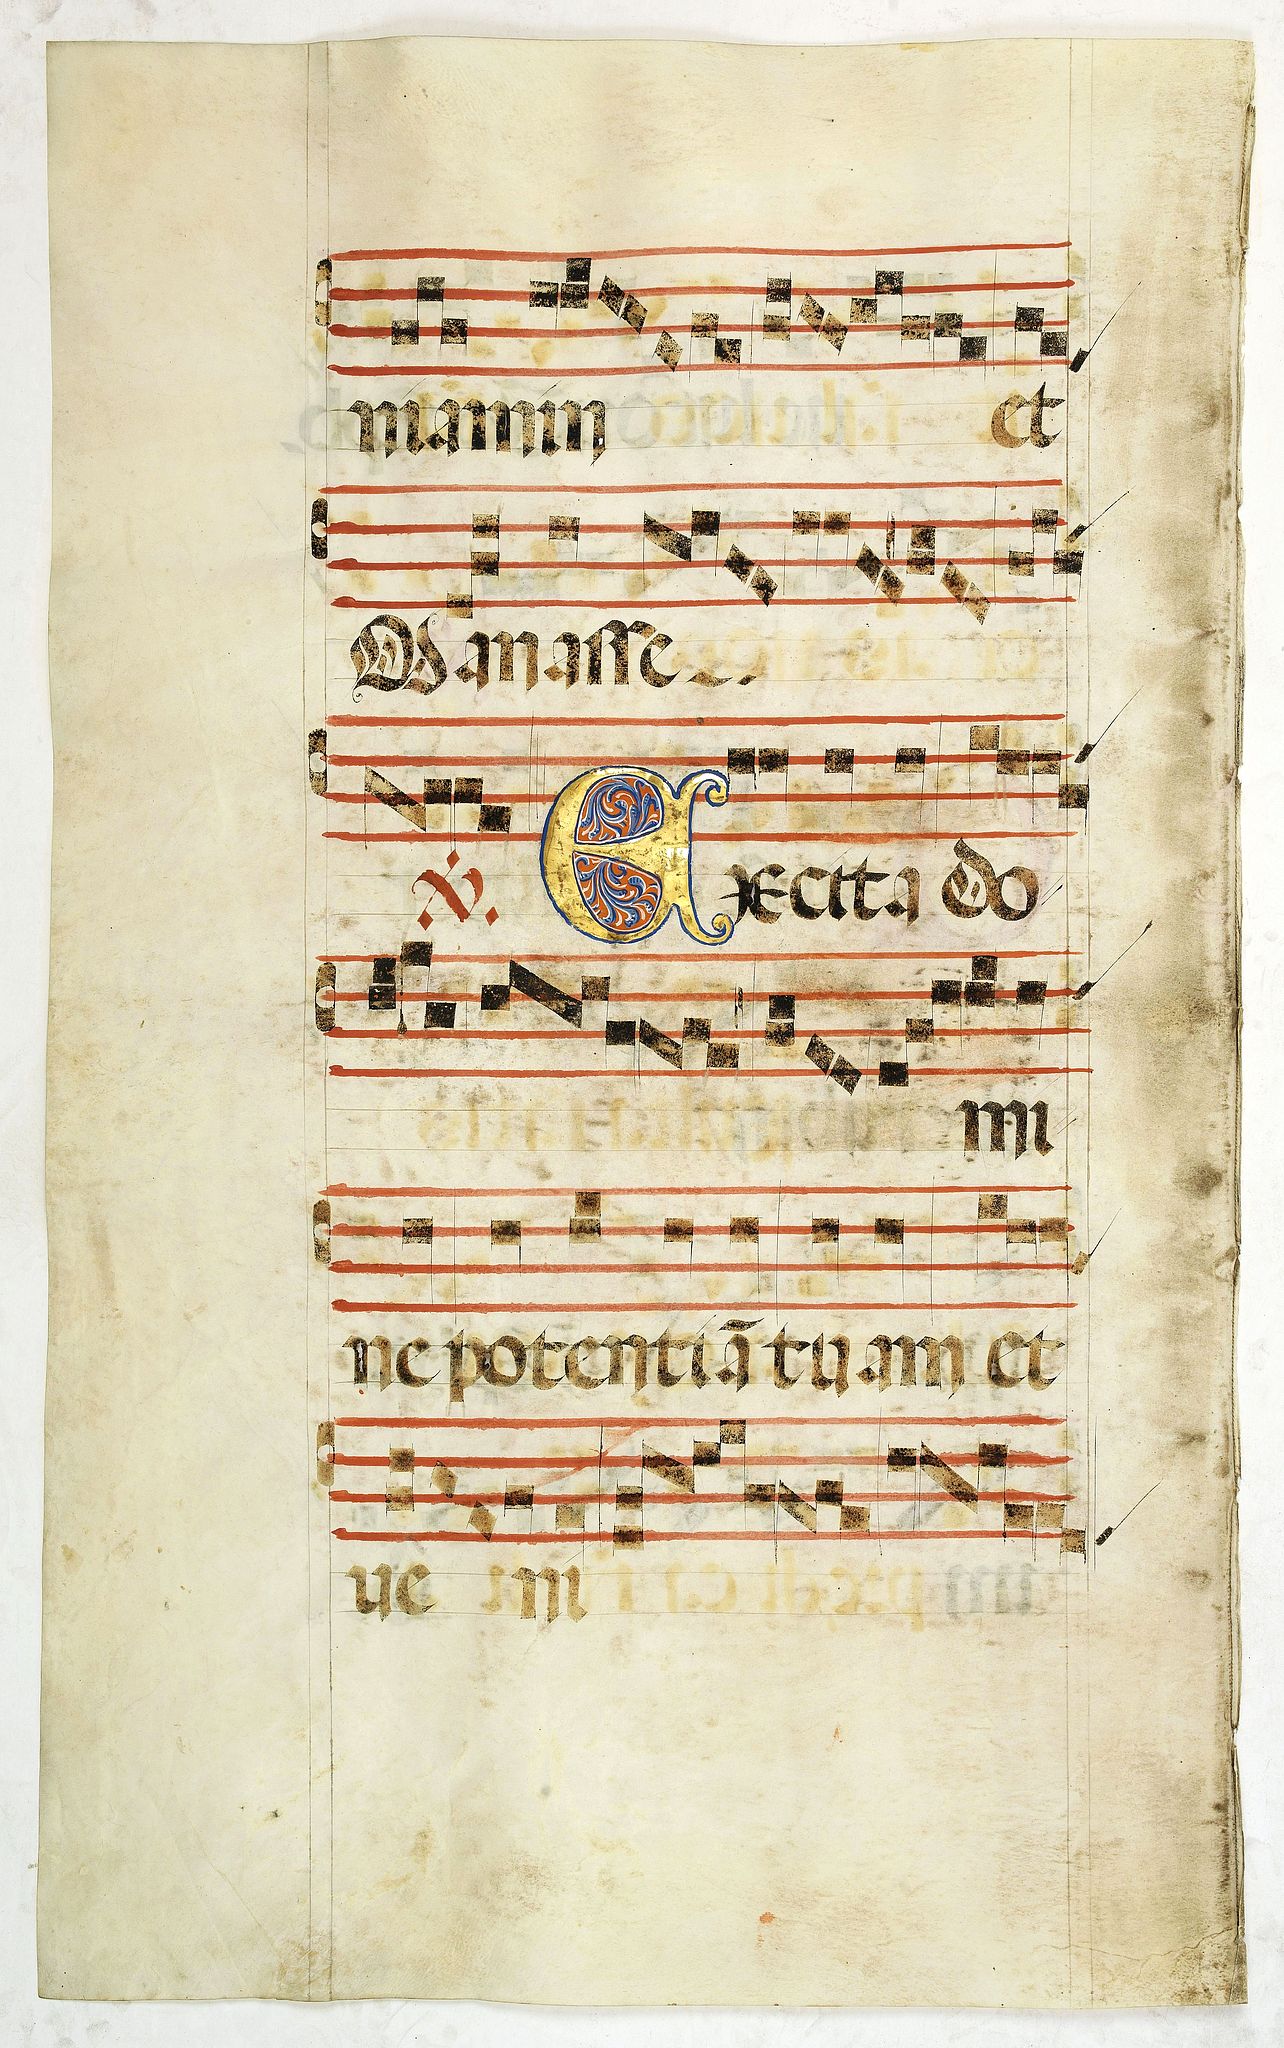 miamin et
Manasse.
℣. Excita do
mi
ne potentiā tuam et
ue ni